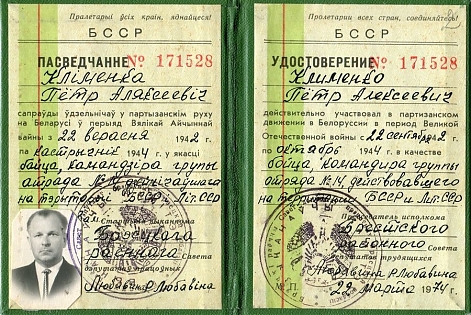 Пралетарыі ўсіх краін, яднайцеся!
БССР
ПАСВЕДЧАННЕ № 171528
Кліменка
Пётр Аляксеевіч
сапраўды ўдзельнічаў у партызанскім руху
на Беларусі ў перыяд Вялікай Айчыннай
вайны з 22 верасня 1942 г.
па кастрычнік 1944 г. у якасці
байца, камандзіра групы
атрада № 14, дзейнічаўшага
на тэрыторыі БССР и Лит. ССР
Старшыня выканкома
Брэсцкага
раённага Савета
дэпутатаў працоўных
Любавіна Р Любавина
Пролетарии всех стран, соединяйтесь!
БССР
УДОСТОВЕРЕНИЕ № 171528
Клименко
Пётр Алексеевич
действительно участвовал в партизанском
движении в Белоруссии в период Великой
Отечественной войны с 22 сентября 1942
по октябрь 1944 г. в качестве
бойца, командира группы
отряда № 14, действовавшего
на территории БССР и Лит. ССР
Председатель исполкома
Брестского
районного Совета
депутатов трудящихся
Р Любавина
М. П. 22 марта 1974 г.